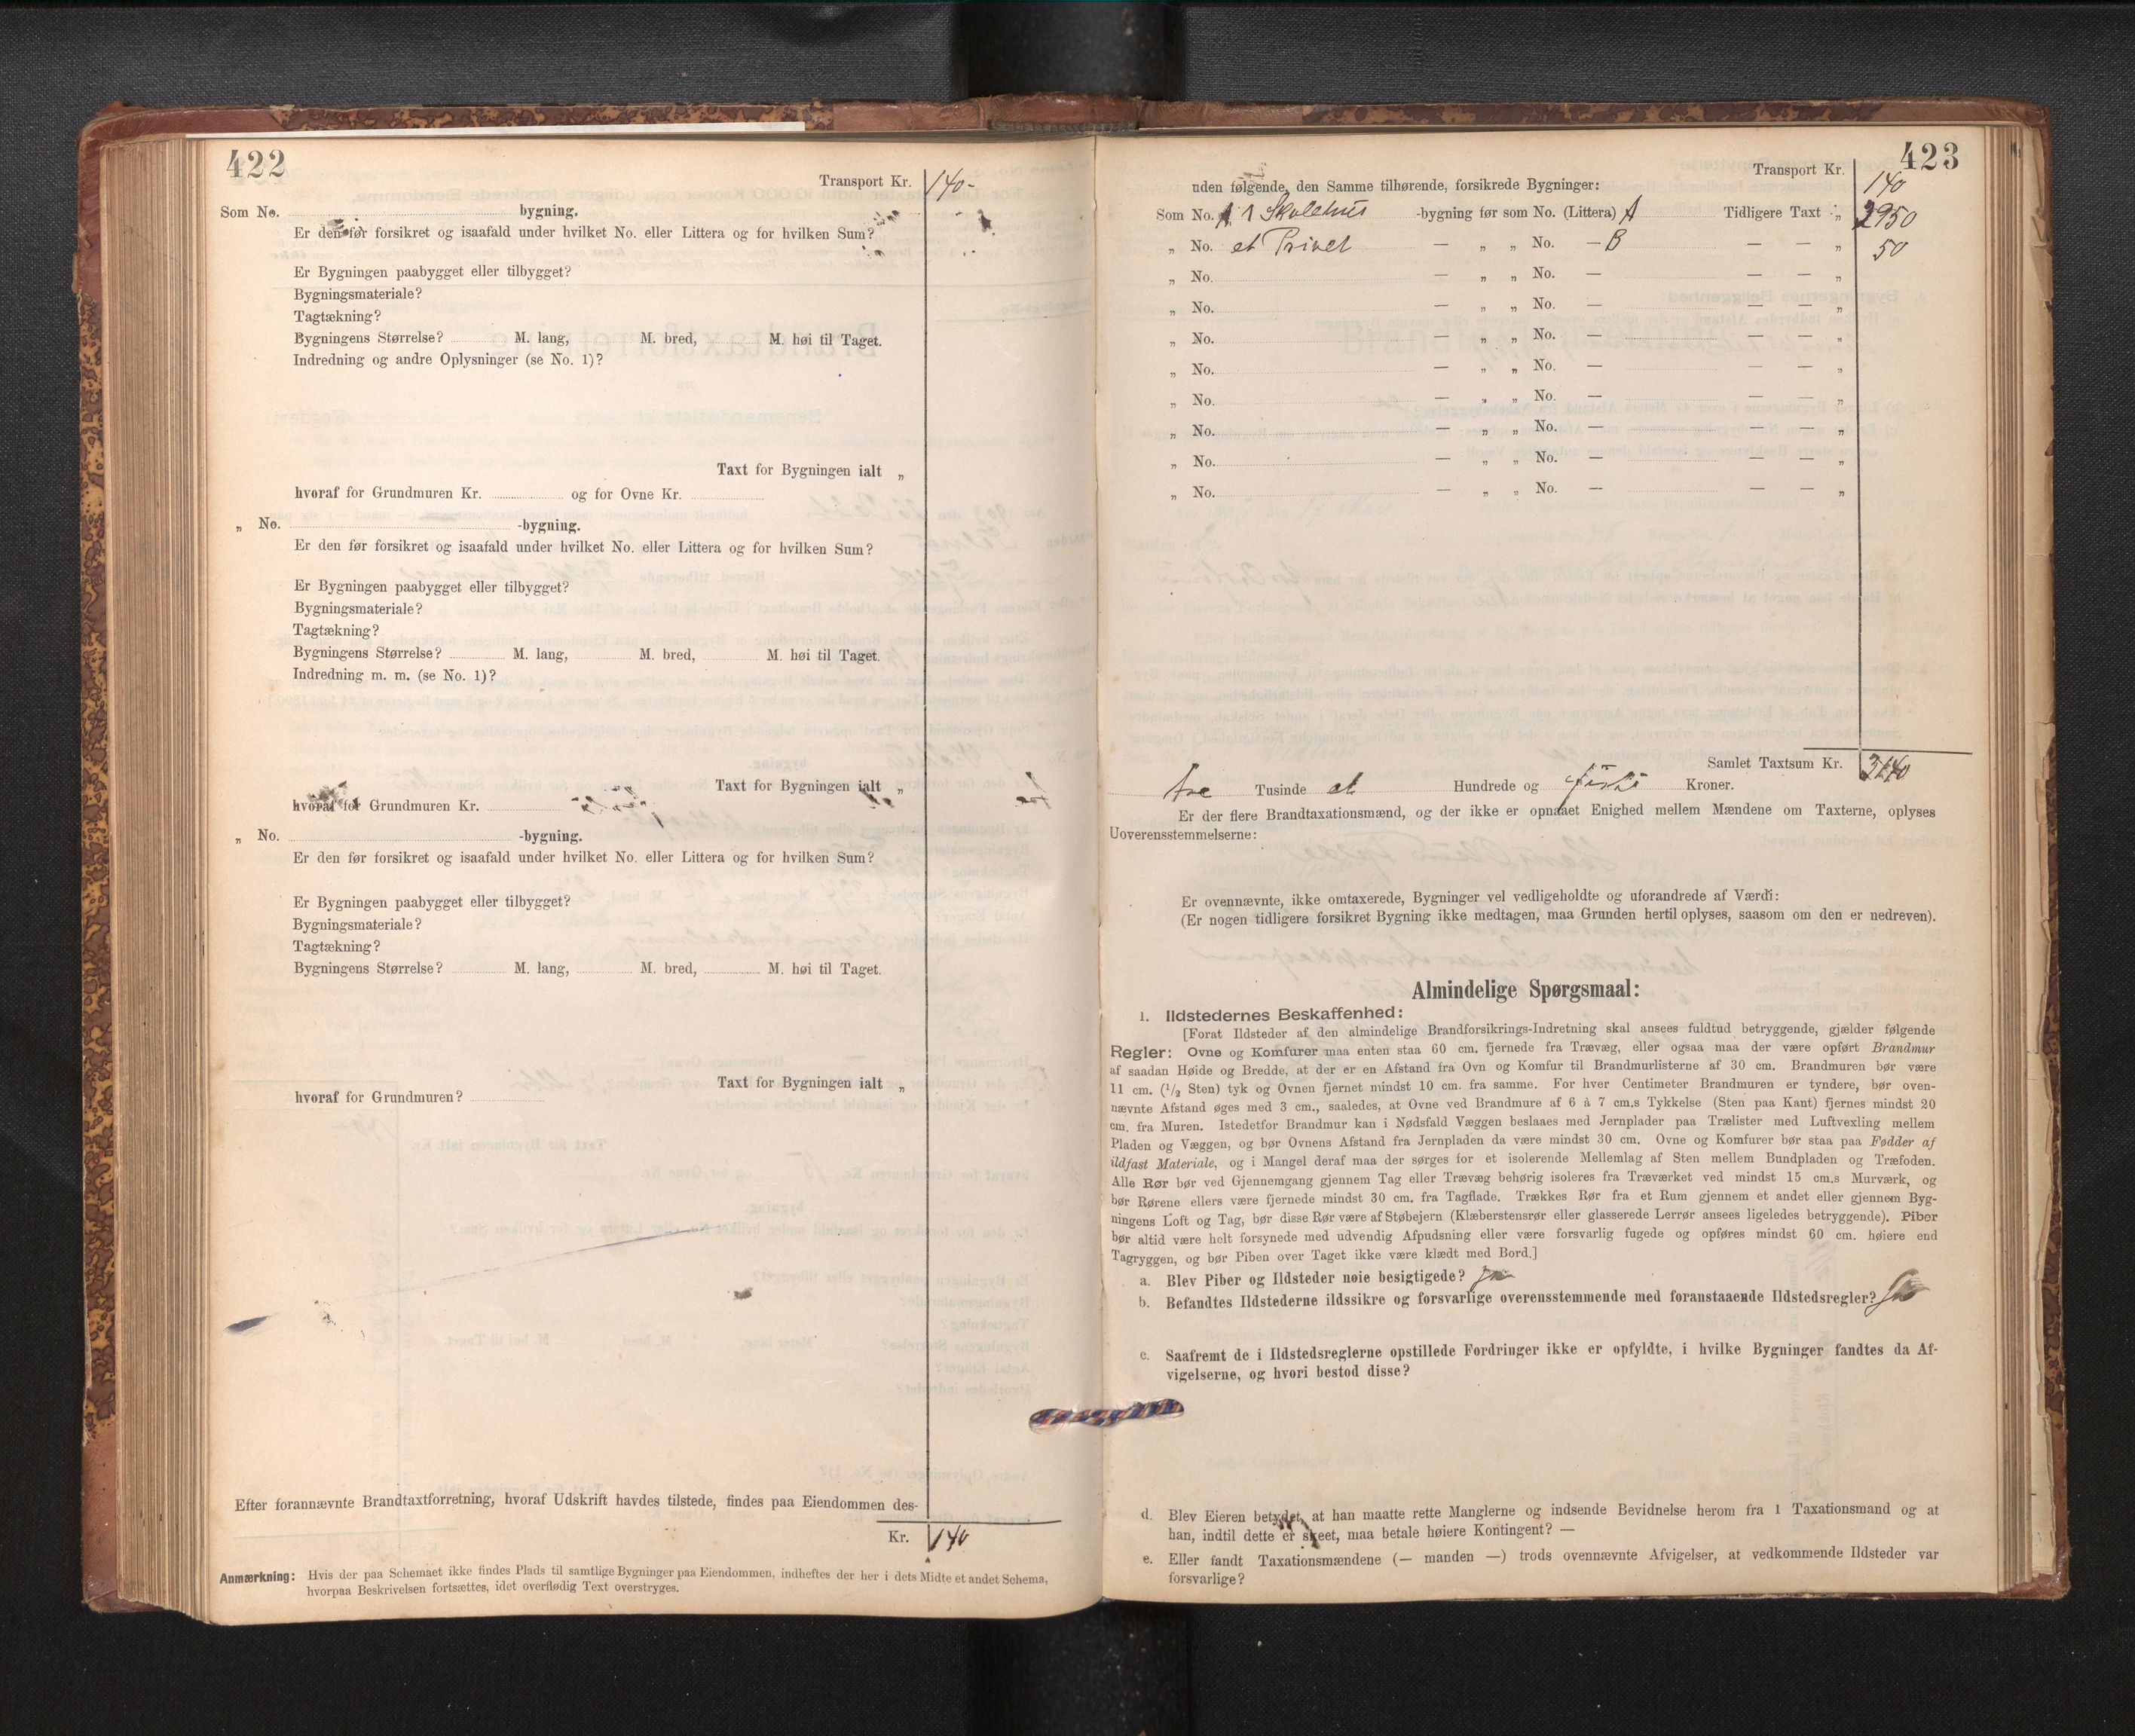 422
Transport Kr. 140-
Som No. bygning.
Er den før forsikret og isaafald under hvilket No. eller Littera og for hvilken Sum?
Er Bygningen paabygget eller tilbygget?
Bygningsmateriale?
Tagtækning?
Bygningens Størrelse? M. lang, M. bred, M. høi til Taget.
Indredning og andre Oplysninger (se No. 1)?
Taxt for Bygningen ialt „
hvoraf for Grundmuren Kr. og for Ovne Kr.
„ No. -bygning.
Er den før forsikret og isaafald under hvilket No. eller Littera og for hvilken Sum?
Er Bygningen paabygget eller tilbygget?
Bygningsmateriale?
Tagtækning?
Bygningens Størrelse? M. lang, M. bred, M. høi til Taget.
Indredning m. m. (se No. 1)?
Taxt for Bygningen ialt „
hvoraf for Grundmuren Kr.
„ No. -bygning.
Er den før forsikret og isaafald under hvilket No. eller Littera og for hvilken Sum?
Er Bygningen paabygget eller tilbygget?
Bygningsmateriale?
Tagtækning?
Bygningens Størrelse? M. lang, M. bred, M. høi til Taget.
Taxt for Bygningen ialt „
hvoraf for Grundmuren?
Efter forannævnte Brandtaxtforretning, hvoraf Udskrift havdes tilstede, findes paa Eiendommen des-
Kr. 140
Anmærkning: Hvis der paa Schemaet ikke findes Plads til samtlige Bygninger paa Eiendommen, indheftes der her i dets Midte et andet Schema,
hvorpaa Beskrivelsen fortsættes, idet overflødig Text overstryges.
423
Transport Kr. 140
uden følgende, den Samme tilhørende, forsikrede Bygninger:
Som No. 1 Skolehus -bygning før som No. (Littera) A Tidligere Taxt „ 2950
„ No. et Privet — „ „ No. — B — — „ 50
„ No. — „ „ No. — — — „
„ No. — „ „ No. — — — „
„ No. — „ „ No. — — — „
„ No. — „ „ No. — — — „
„ No. — „ „ No. — — — „
„ No. — „ „ No. — — — „
„ No. — „ „ No. — — — „
„ No. — „ „ No. — — — „
Samlet Taxtsum Kr. 3140
tre Tusinde et Hundrede og førti Kroner.
Er der flere Brandtaxationsmænd, og der ikke er opnaaet Enighed mellem Mændene om Taxterne, oplyses
Uoverensstemmelserne:
Er ovennævnte, ikke omtaxerede, Bygninger vel vedligeholdte og uforandrede af Værdi:
(Er nogen tidligere forsikret Bygning ikke medtagen, maa Grunden hertil oplyses, saasom om den er nedreven).
Almindelige Spørgsmaal:
1. Ildstedernes Beskaffenhed:
[Forat Ildsteder af den almindelige Brandforsikrings-Indretning skal ansees fuldtud betryggende, gjælder følgende
Regler: Ovne og Komfurer maa enten staa 60 cm. fjernede fra Trævæg, eller ogsaa maa der være opført Brandmur
af saadan Høide og Bredde, at der er en Afstand fra Ovn og Komfur til Brandmurlisterne af 30 cm. Brandmuren bør være
11 cm. (1/2 Sten) tyk og Ovnen fjernet mindst 10 cm. fra samme. For hver Centimeter Brandmuren er tyndere, bør oven-
nævnte Afstand øges med 3 cm., saaledes, at Ovne ved Brandmure af 6 à 7 cm.s Tykkelse (Sten paa Kant) fjernes mindst 20
cm. fra Muren. Istedetfor Brandmur kan i Nødsfald Væggen beslaaes med Jernplader paa Trælister med Luftvexling mellem
Pladen og Væggen, og bør Ovnens Afstand fra Jernpladen da være mindst 30 cm. Ovne og Komfurer bør staa paa Fødder af
ildfast Materiale, og i Mangel deraf maa der sørges for et isolerende Mellemlag af Sten mellem Bundpladen og Træfoden.
Alle Rør bør ved Gjennemgang gjennem Tag eller Trævæg behørig isoleres fra Træværket ved mindst 15 cm.s Murværk, og
bør Rørene ellers være fjernede mindst 30 cm. fra Tagflade. Trækkes Rør fra et Rum gjennem et andet eller gjennem Byg-
ningens Loft og Tag, bør disse Rør være af Støbejern (Klæberstensrør eller glasserede Lerrør ansees ligeledes betryggende). Piber
bør altid være helt forsynede med udvendig Afpudsning eller være forsvarlig fugede og opføres mindst 60 cm. høiere end
Tagryggen, og bør Piben over Taget ikke være klædt med Bord.]
a. Blev Piber og Ildsteder nøie besigtigede? Ja
b. Befandtes Ildstederne ildssikre og forsvarlige overensstemmende med foranstaaende Ildstedsregler? Ja
c. Saafremt de i Ildstedsreglerne opstillede Fordringer ikke er opfyldte, i hvilke Bygninger fandtes da Af-
vigelserne, og hvori bestod disse?
d. Blev Eieren betydet, at han maatte rette Manglerne og indsende Bevidnelse herom fra 1 Taxationsmand og at
han, indtil dette er skeet, maa betale høiere Kontingent? —
e. Eller fandt Taxationsmændene (— manden —) trods ovennævnte Afvigelser, at vedkommende Ildsteder var
forsvarlige?